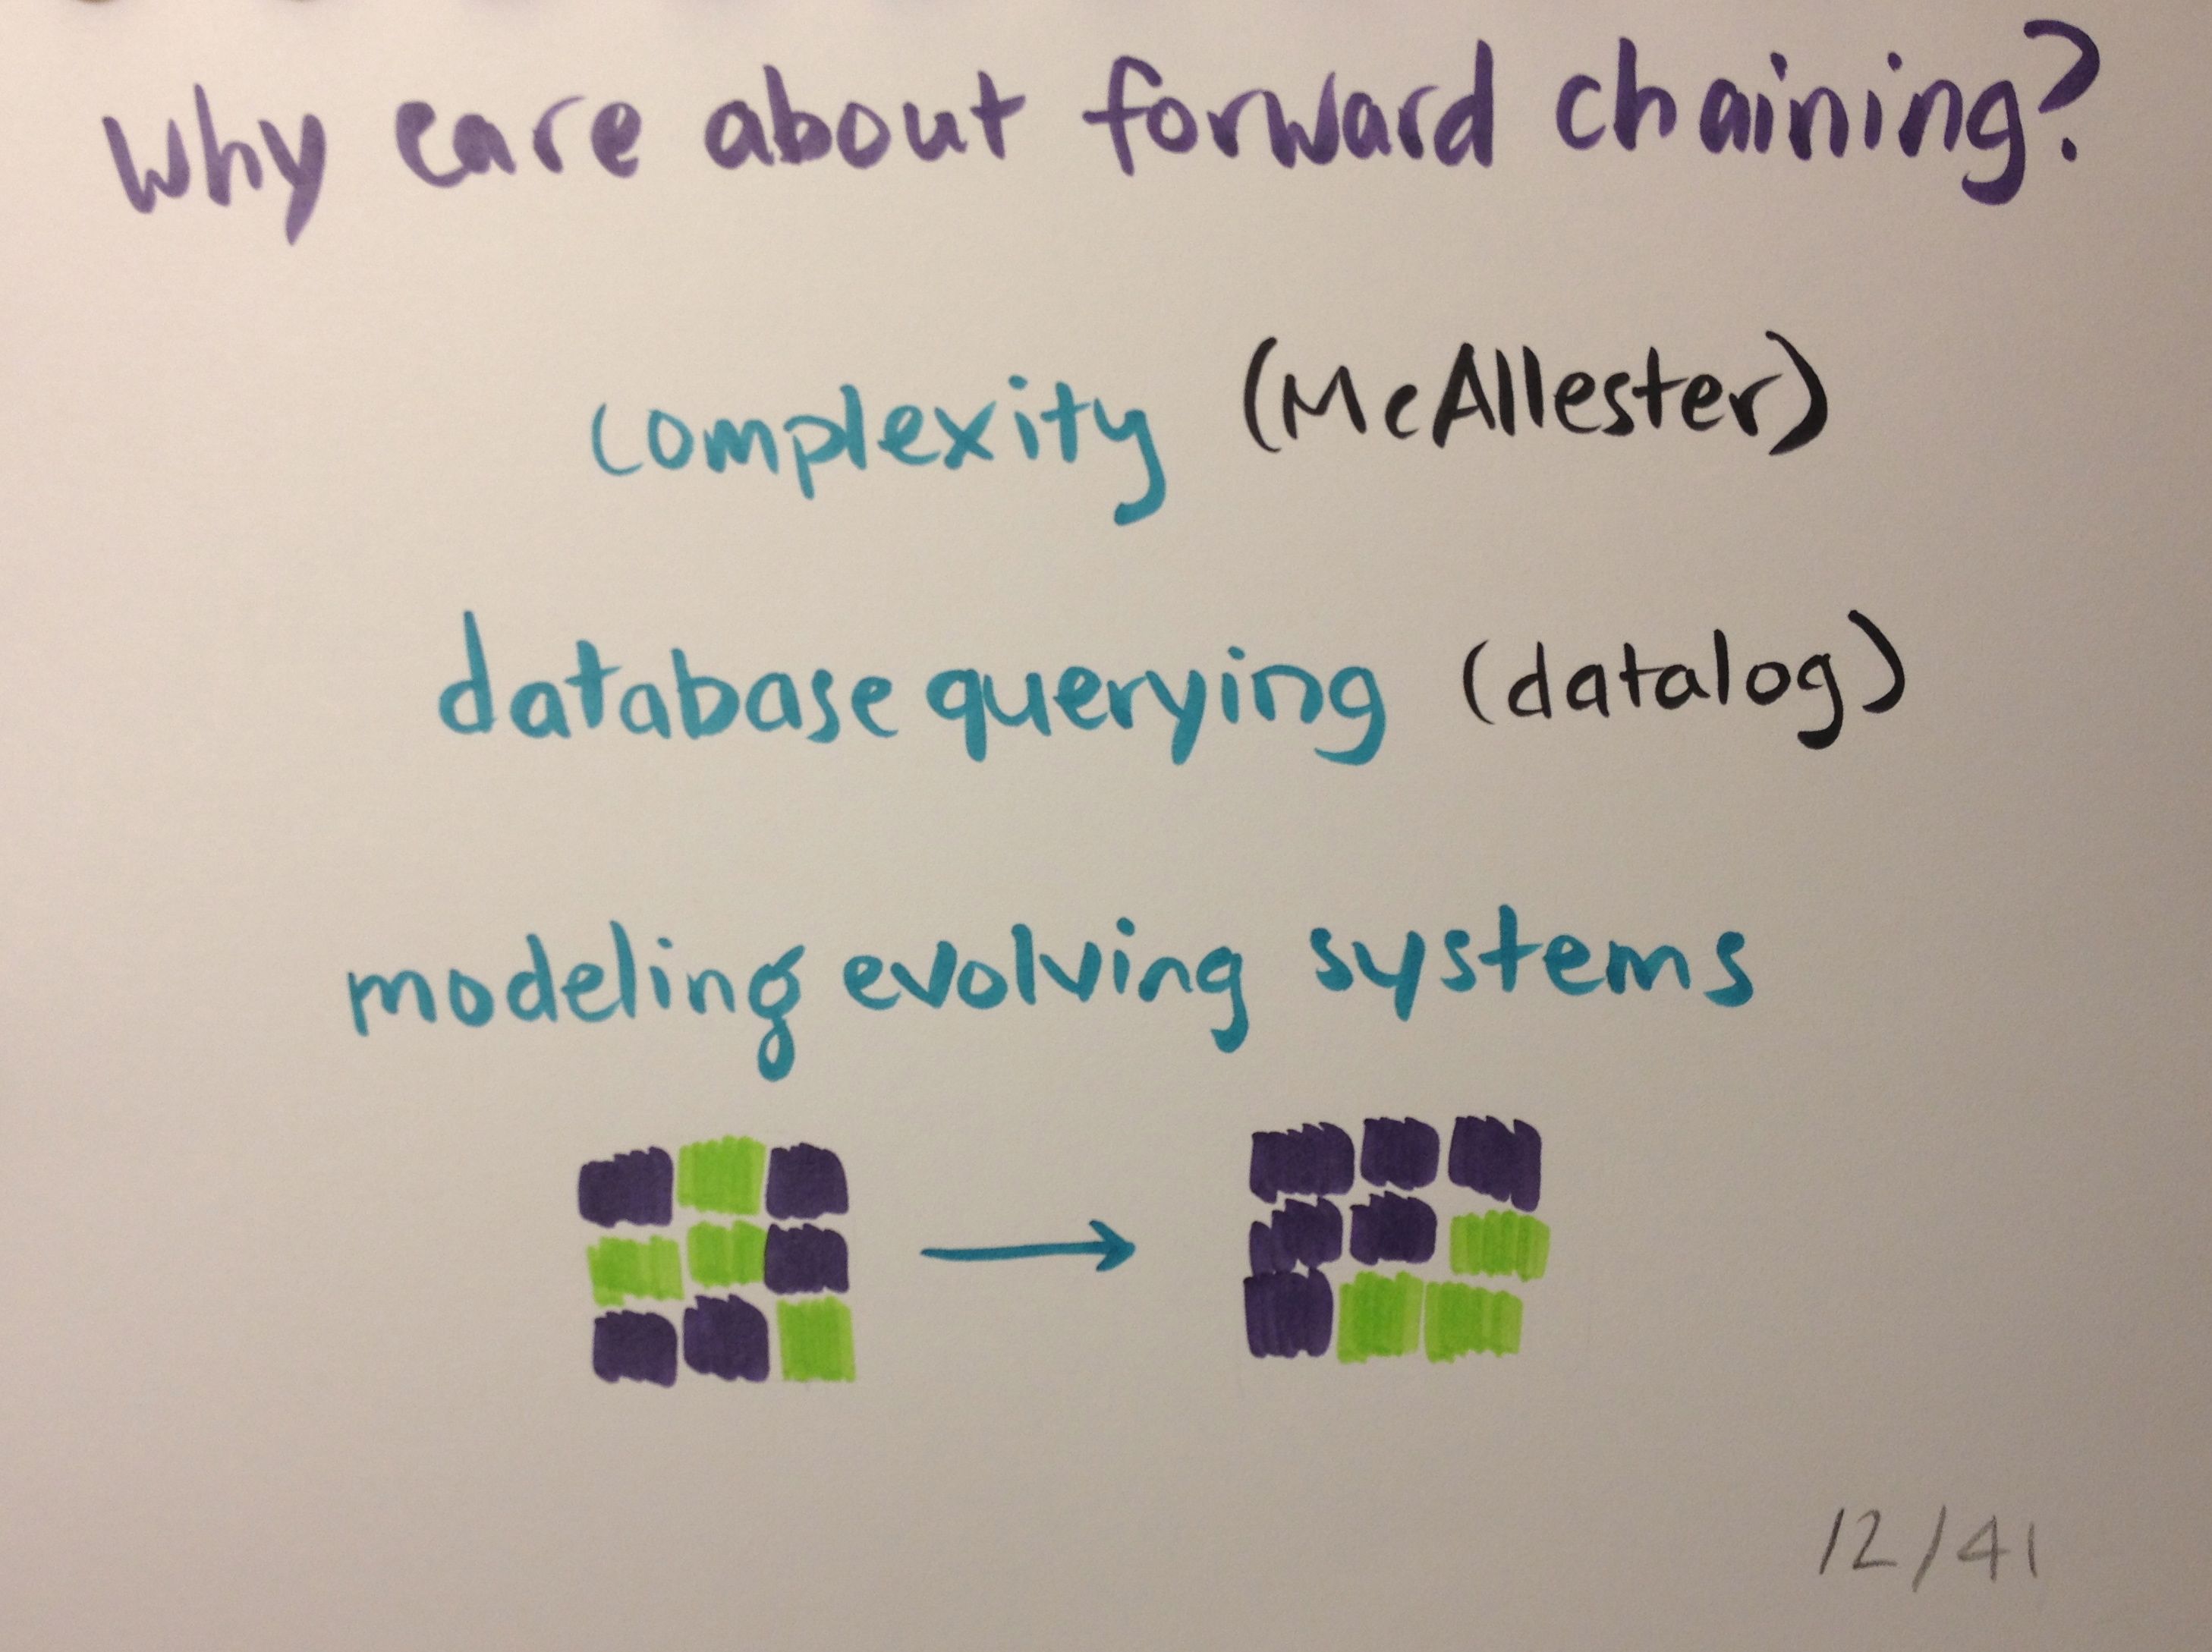 Why care about forward chaining?
complexity (McAllester)
database querying (datalog)
modeling evolving systems
12/41